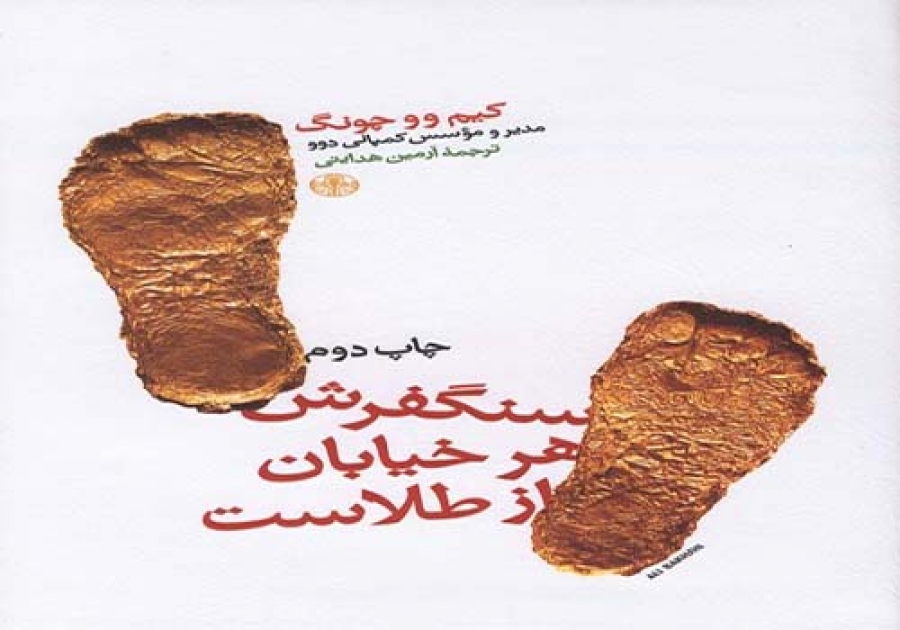 کیم وو چونگ
مدیر و مؤسس کمپانی دوو
ترجمهٔ آرمین هدایتی
چاپ دوم
سنگفرش
هر خیابان
از طلاست